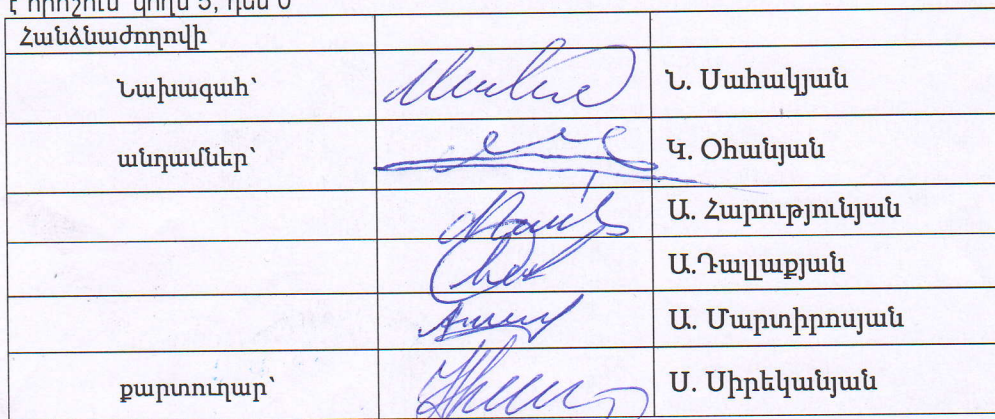 է որոշում՝ կողմ 5, դեմ 0
Հանձնաժողովի
Նախագահ՝ Ն. Սահակյան
անդամներ՝ Կ. Օհանյան
Ա. Հարությունյան
Ա.Դալլաքյան
Ա. Մարտիրոսյան
քարտուղար՝ Ս. Սիրեկանյան